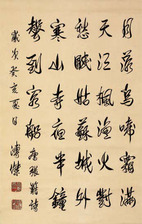 月落烏啼霜滿
天江楓漁火對
愁眠姑蘇城外
寒山寺夜半鐘
聲到客船 唐張繼詩
歲次癸亥夏日 溥傑